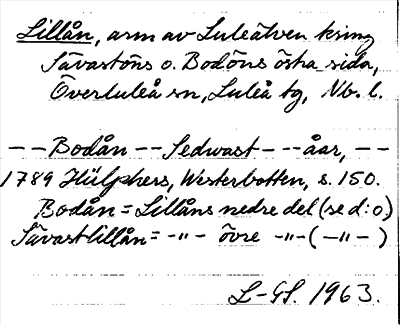 Lillån, arm av Luleälven kring
Sävastöns o. Bodöns östra sida,
Överluleå sn, Luleå tg, Nb. l.
— — Bodån — — Sedwast — — — åar, — —
1789 Hülphers, Westerbotten, s. 150.
Bodån = Lillåns nedre del (se d:o)
Sävastlillån = -"- övre -"- (—"— )
L-GL. 1963.